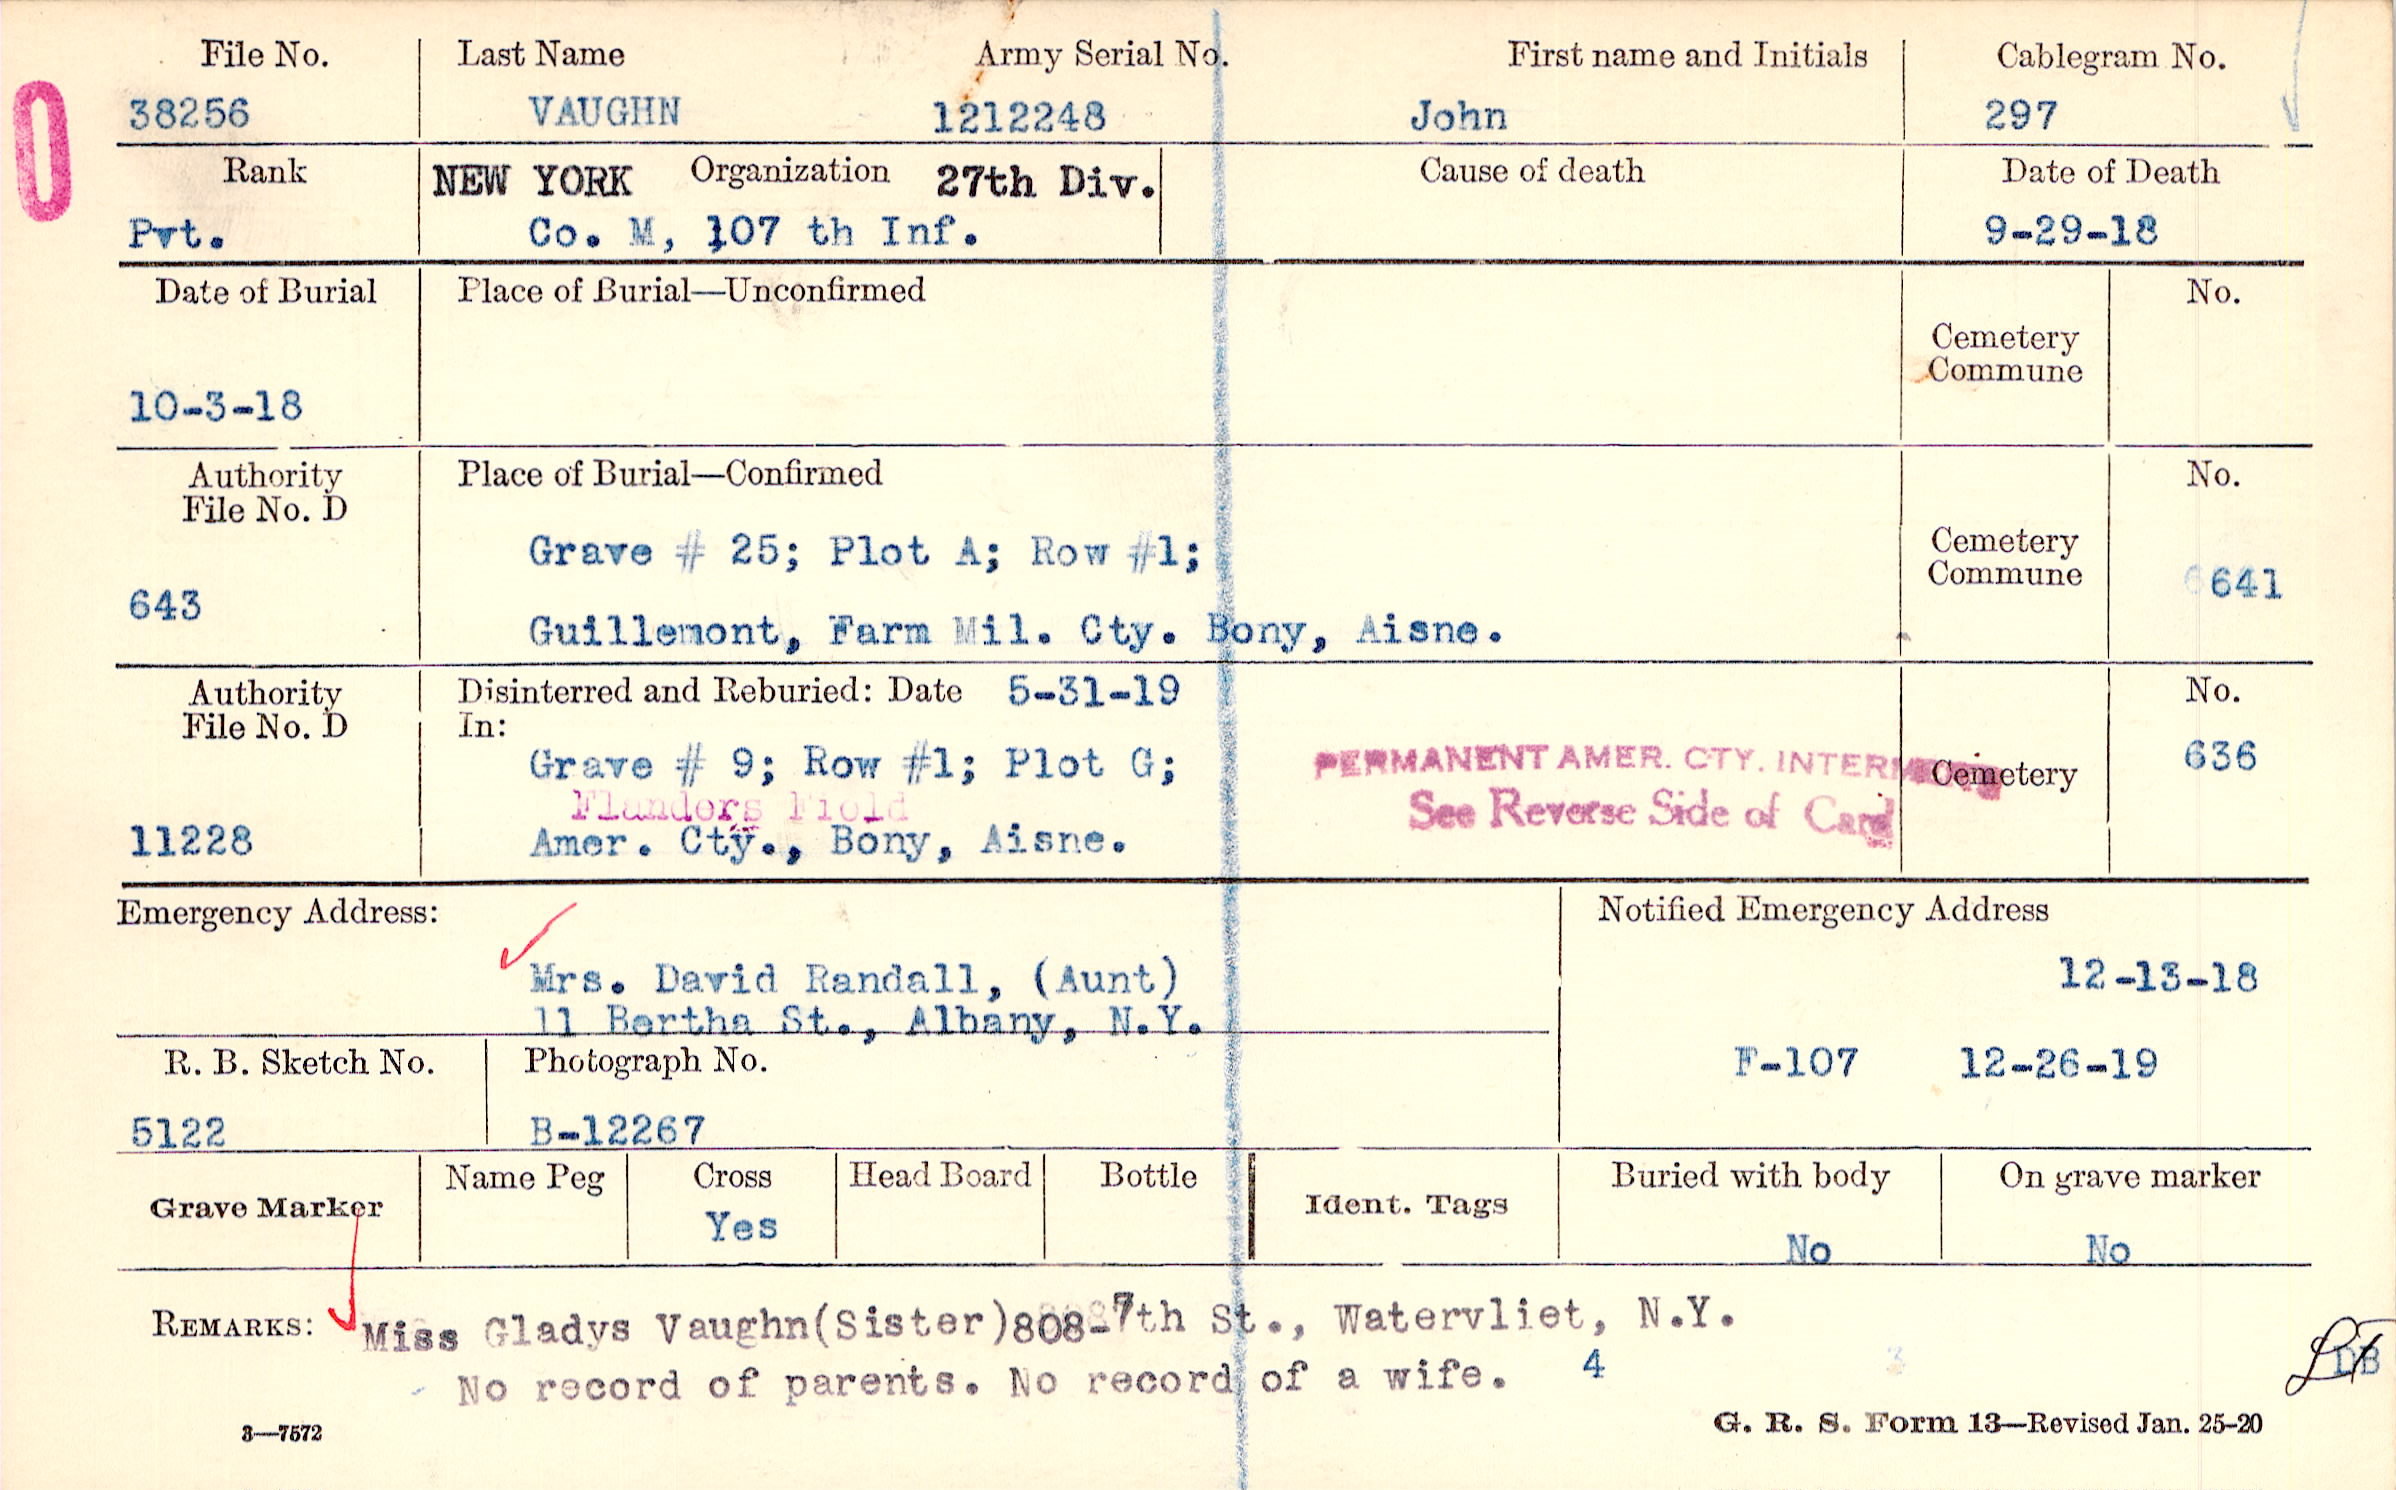 File No. Last Name Army Serial No. First name and Initials Cablegram No.
38256 VAUGHN 1212248 John 297
Rank NEW YORK Organization 27th Div. Cause of death Date of Death
Pvt. Co. M, 107 th Inf. 9-29-18
Date of Burial Place of Burial—Unconfirmed No.
Cemetery
Commune
10-3-18
Authority Place of Burial—Confirmed No.
File No. D
Grave # 25; Plot A; Row #1; Cemetery
Commune 641
643
Guillemont, Farm Mil. Cty. Bony, Aisne.
Authority Disinterred and Reburied: Date 5-31-19 No.
File No. D In:
Grave # 9; Row #1; Plot G; PERMANENT AMER. CTY. Cemetery 636
Flanders Field See Reverse Side of Card
11228 Amer. Cty., Bony, Aisne.
Emergency Address: Notified Emergency Address
Mrs. David Randall, (Aunt) 12-13-18
11 Bertha St., Albany, N.Y.
R. B. Sketch No. Photograph No. F-107 12-26-19
5122 B-12267
Grave Marker Name Peg Cross Head Board Bottle Ident. Tags Buried with body On grave marker
Yes No No
REMARKS: Miss Gladys Vaughn(Sister)808-7th St., Watervliet, N.Y.
No record of parents. No record of a wife. 4 3 DB
3—7572 G. R. S. Form 13—Revised Jan. 25-20